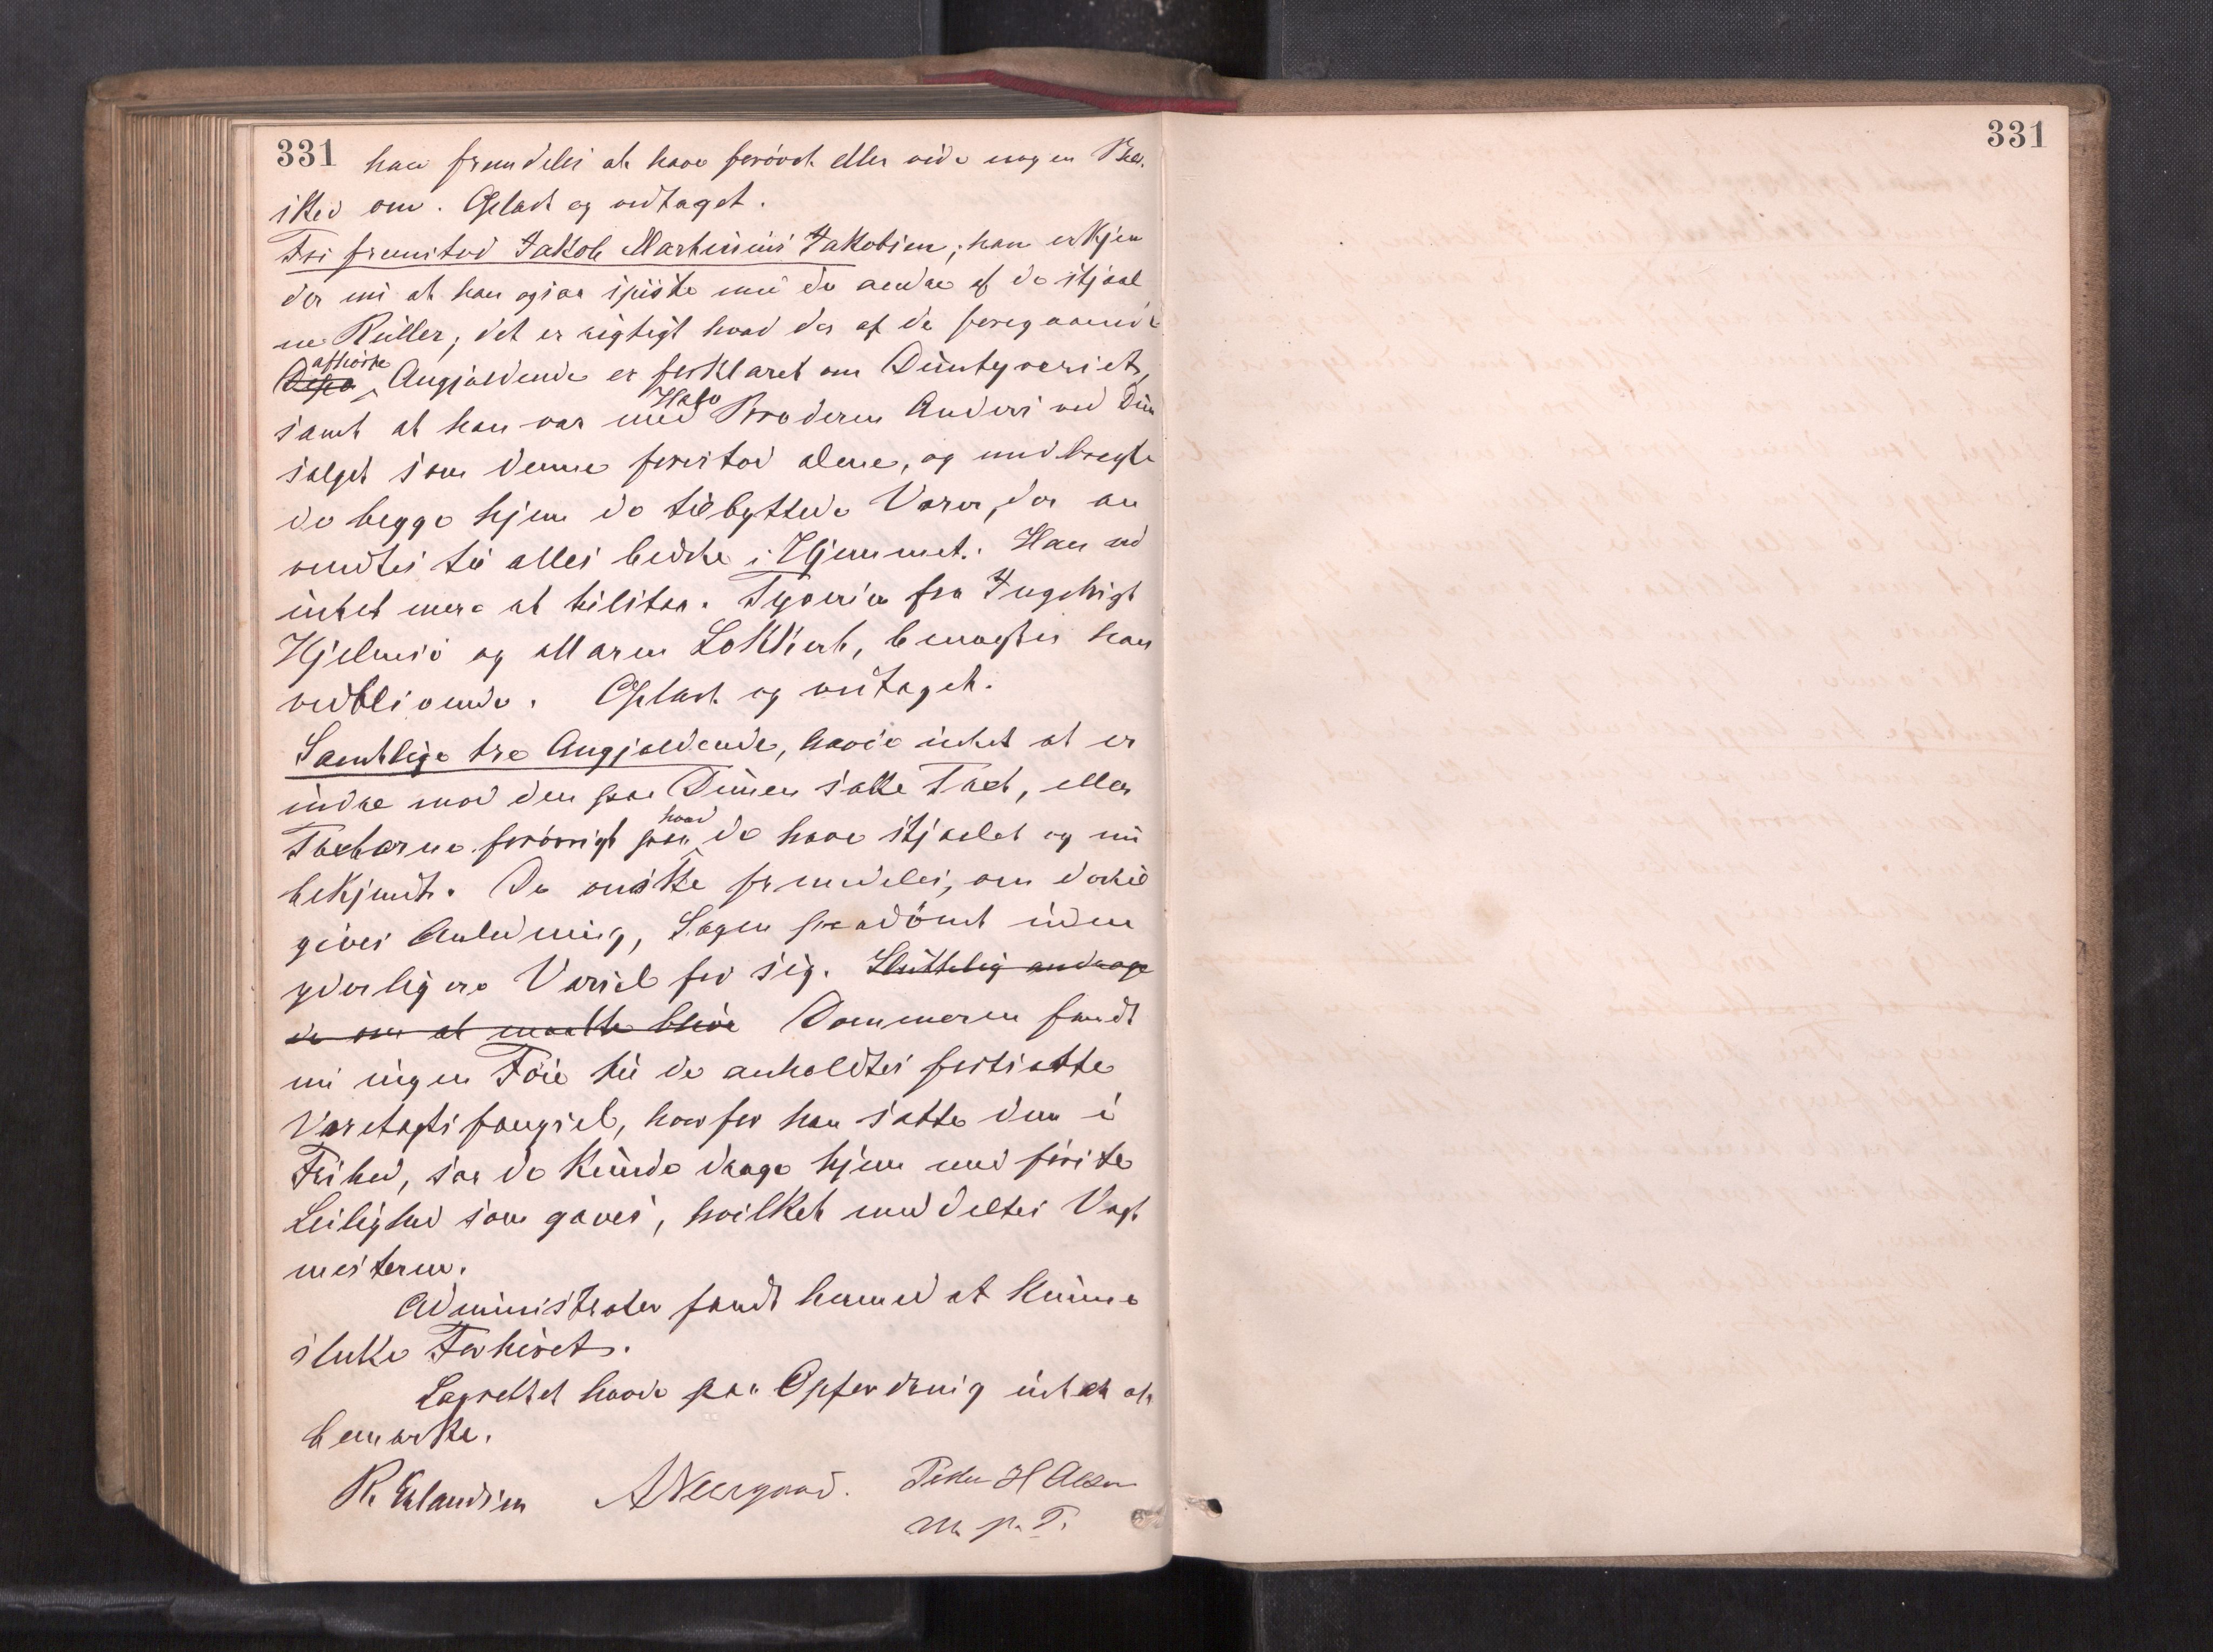 331
331
han fremdeles at have forøvet eller vide nogen Be-
sked om. Oplæst og vedtaget.
Fri fremstod Jakob Martinius Jakobsen; han erkjen
der nu at han ogsaa spiste med de andre af de stjaal
ne Kuller; det er rigtigt hvad der af de foregaaende
Disse afhørte Angjældende er forklaret om Duntyveriet,
samt at han var med Halv Broderen Anders ved Dun
salget som denne forestod alene, og medbragte
de begge hjem de tilbyttede Varer, der an
vendtes til alles bedste i Hjemmet. Han ved
intet mere at tilstaa. Tyverier fra Ingebrigt
Hjelmsø og Maren Lokkert, benægtes han
vedblivende. Oplæst og vedtaget.
Samtlige tre Angjældende, havde intet at er
indre mod den paa Dunen satte Taxt, eller
Taxterne forøvrigt paa hvad de have stjaalet og nu
bekjendt. De ønske fremdeles, om dertil
gives Anledning, Sagen paadømt uden
yderligere Varsel for sig. Sluttelig androge
de om at maatte blive Dommeren fandt
nu ingen Føie til de anholdtes fortsatte
Varetægtsfængsel, hvorfor han satte dem i
Frihed, saa de kunde drage hjem med første
Leilighed som gaves, hvilket meddeltes Vagt
mesteren.
Administrator fandt hermed at kunne
slutte Forhøret.
Lagrettet havde paa Opfordring intet at
bemærke.
R. Erlandsen A Neergaard. Peder H Olsen
m. p. P.